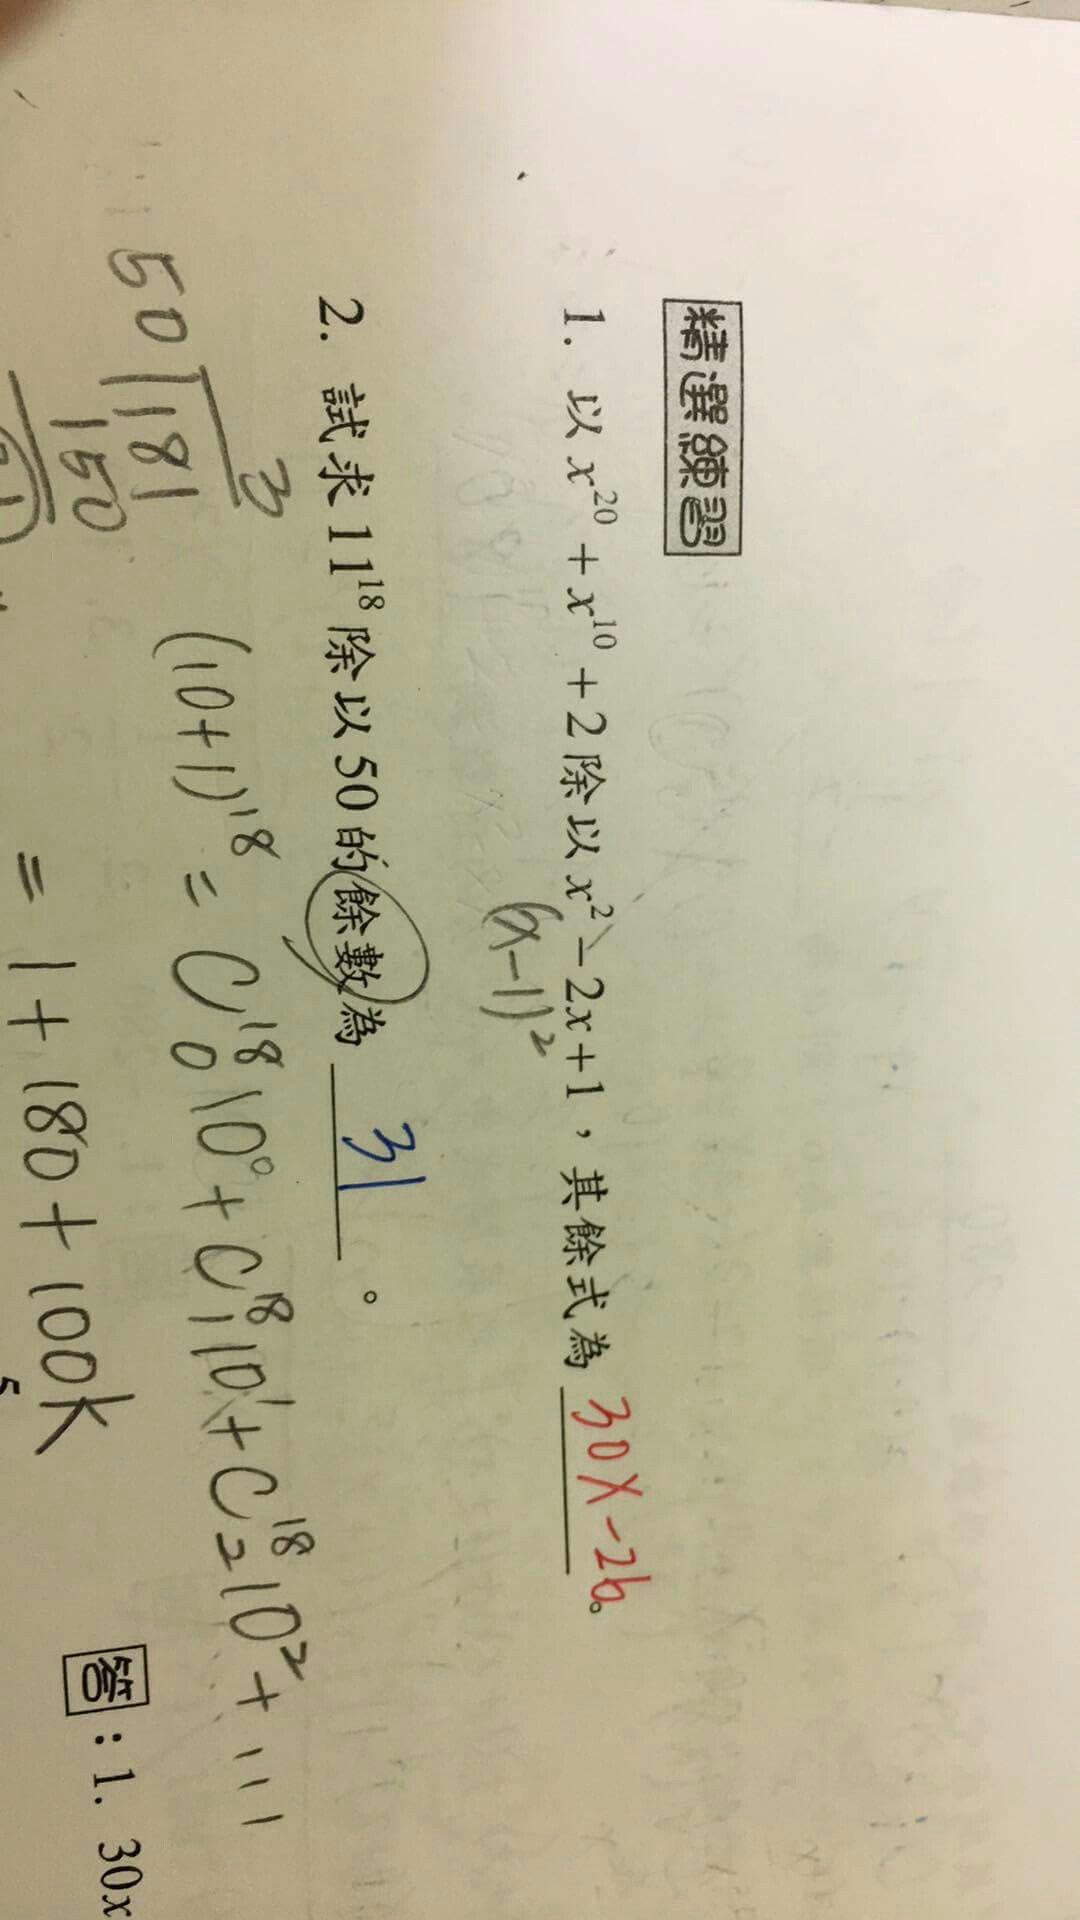 精選練習
1. 以 x²⁰ + x¹⁰ + 2 除以 x² − 2x + 1，其餘式為 30x-26。
(x-1)²
2. 試求 11¹⁸ 除以 50 的餘數為 31 。
(10+1)¹⁸ = C¹⁸₀10⁰ + C¹⁸₁10¹ + C¹⁸₂10² + ...
= 1 + 180 + 100k
3
50 181
150
答：1. 30x